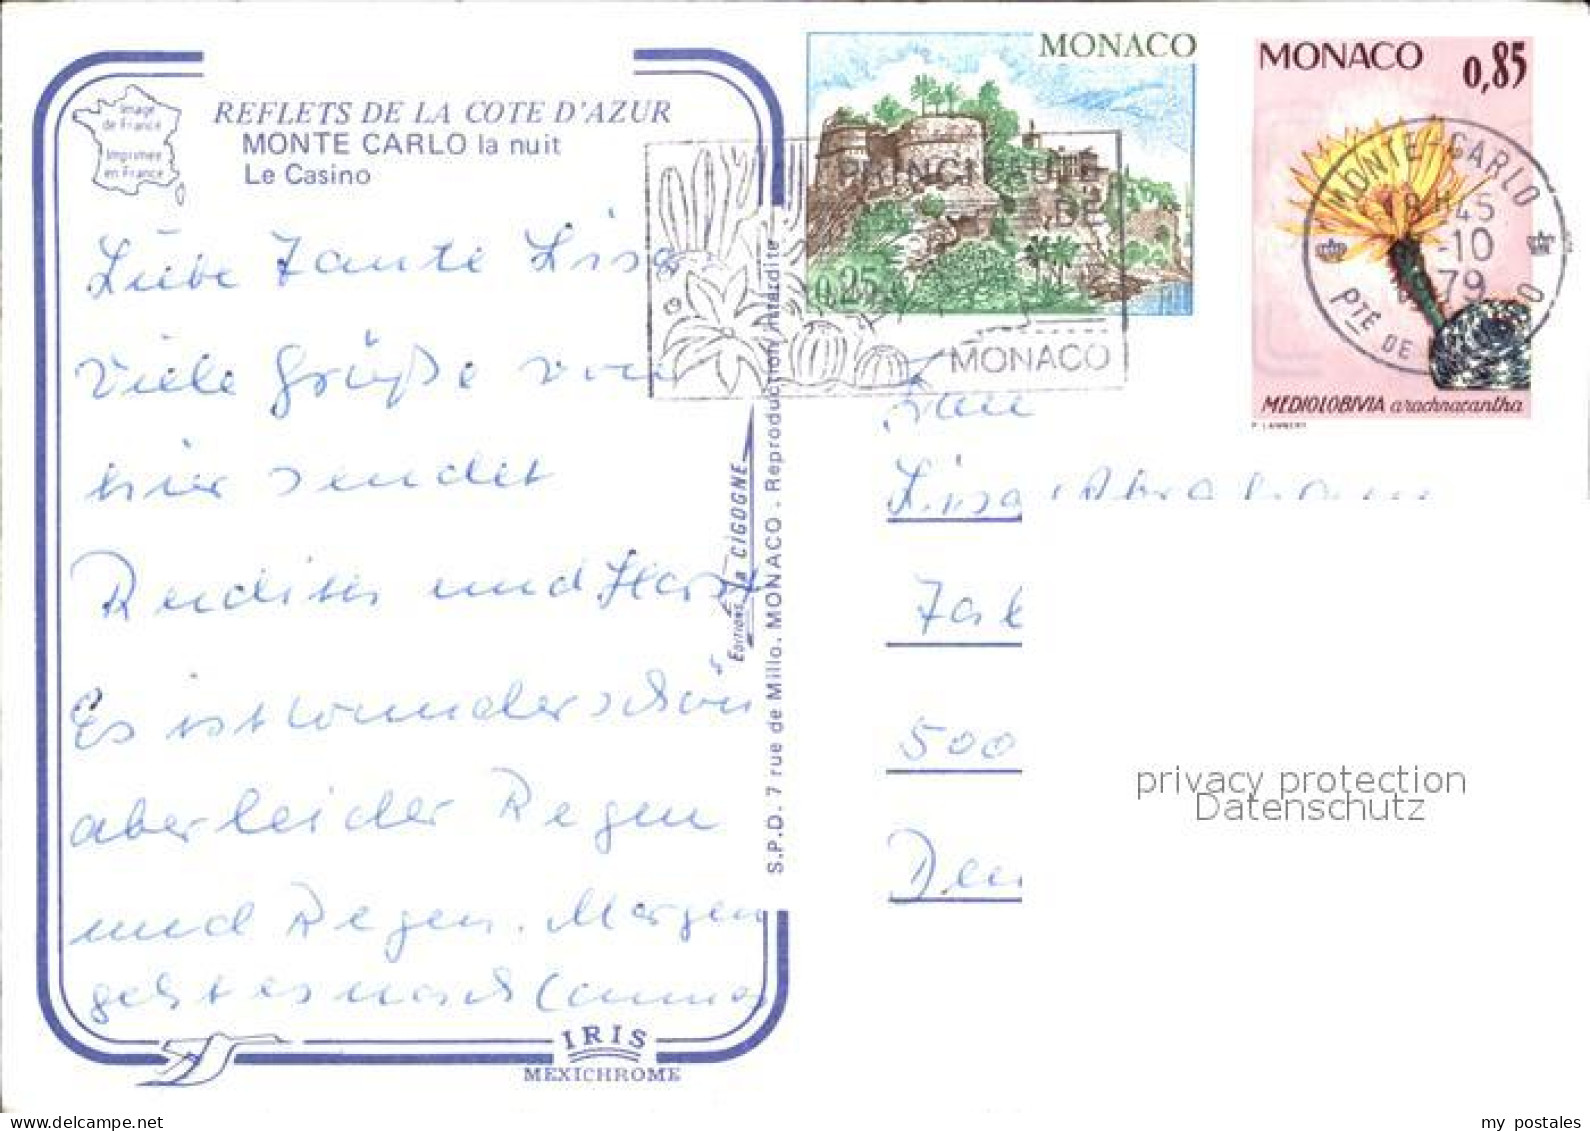 MONACO
MONACO
0,85
0,25
MEDIOLOBIVIA arachnacantha
P. LAMBERT
MONTE-CARLO
18H45
-10
1979
PTÉ DE
PRINCIPAUTÉ
DE
MONACO
Image
de France
Imprimée
en France
REFLETS DE LA COTE D'AZUR
MONTE CARLO la nuit
Le Casino
Liebe Tante Lisa
Viele Grüße von
hier sendet
und Horst
Es ist wunderschön
aber leider Regen
und Regen. Morgen
geht es nach Cannes
IRIS
MEXICHROME
Editions La CIGOGNE
S.P.D. 7 rue de Millo. MONACO - Reproduction interdite
Frau
Lisa Abraham
500
privacy protection
Datenschutz
my_postales